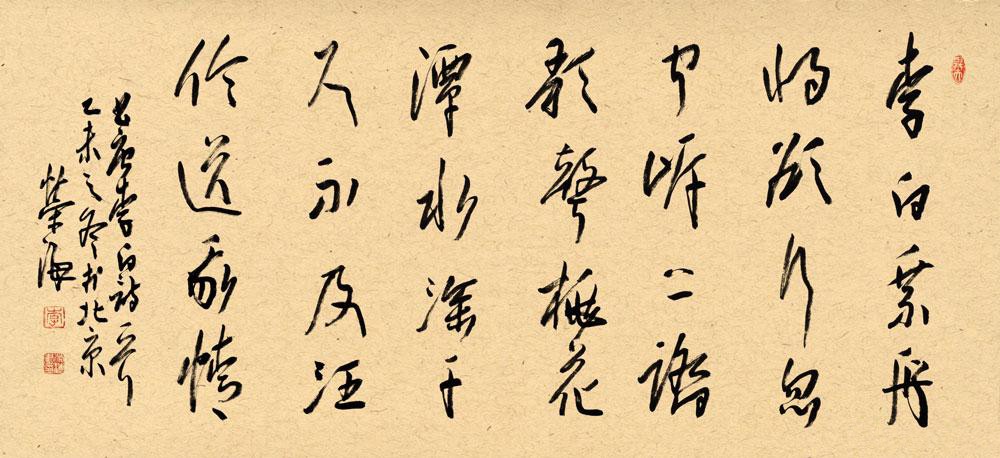 李白乘舟
將欲行忽
聞岸上踏
歌聲桃花
潭水深千
尺不及汪
倫送我情
書唐李白詩一首
乙未之冬於北京
榮海
李